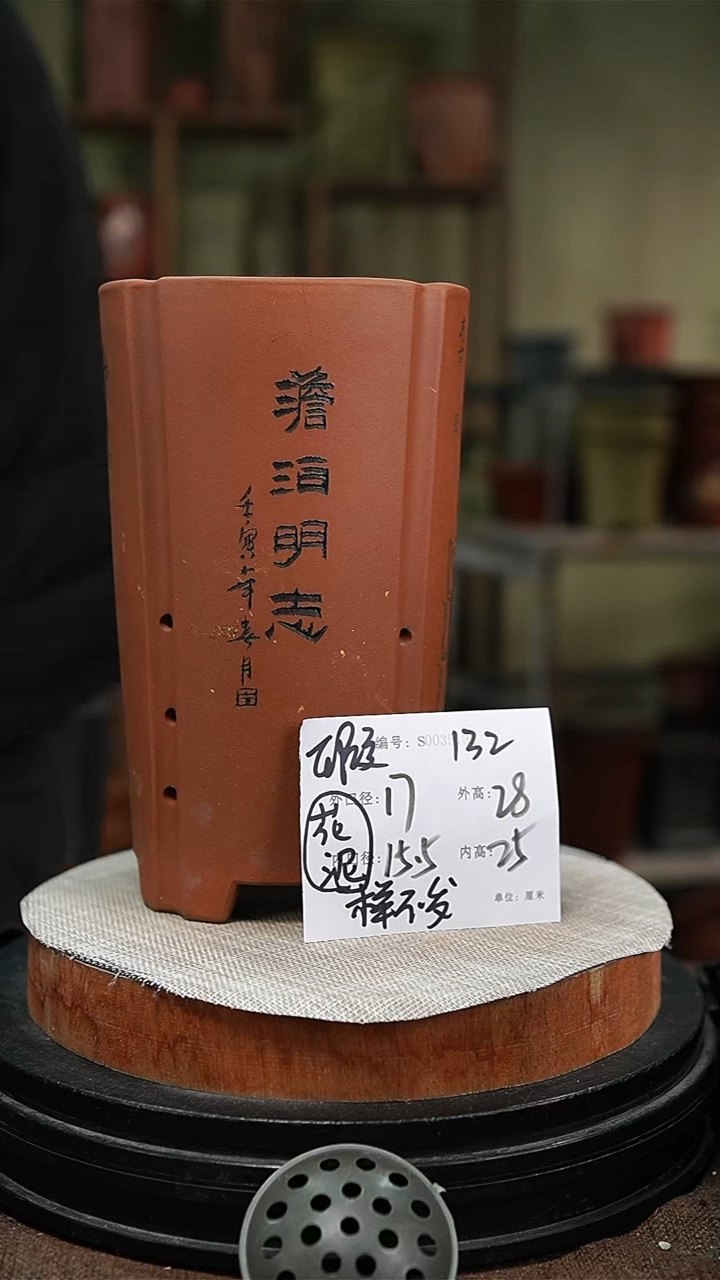 澹泊明志
壬寅年春月
编号: S003 132
外口径: 17 外高: 28
花泥
内口径: 15.5 内高: 25
样不发
单位: 厘米